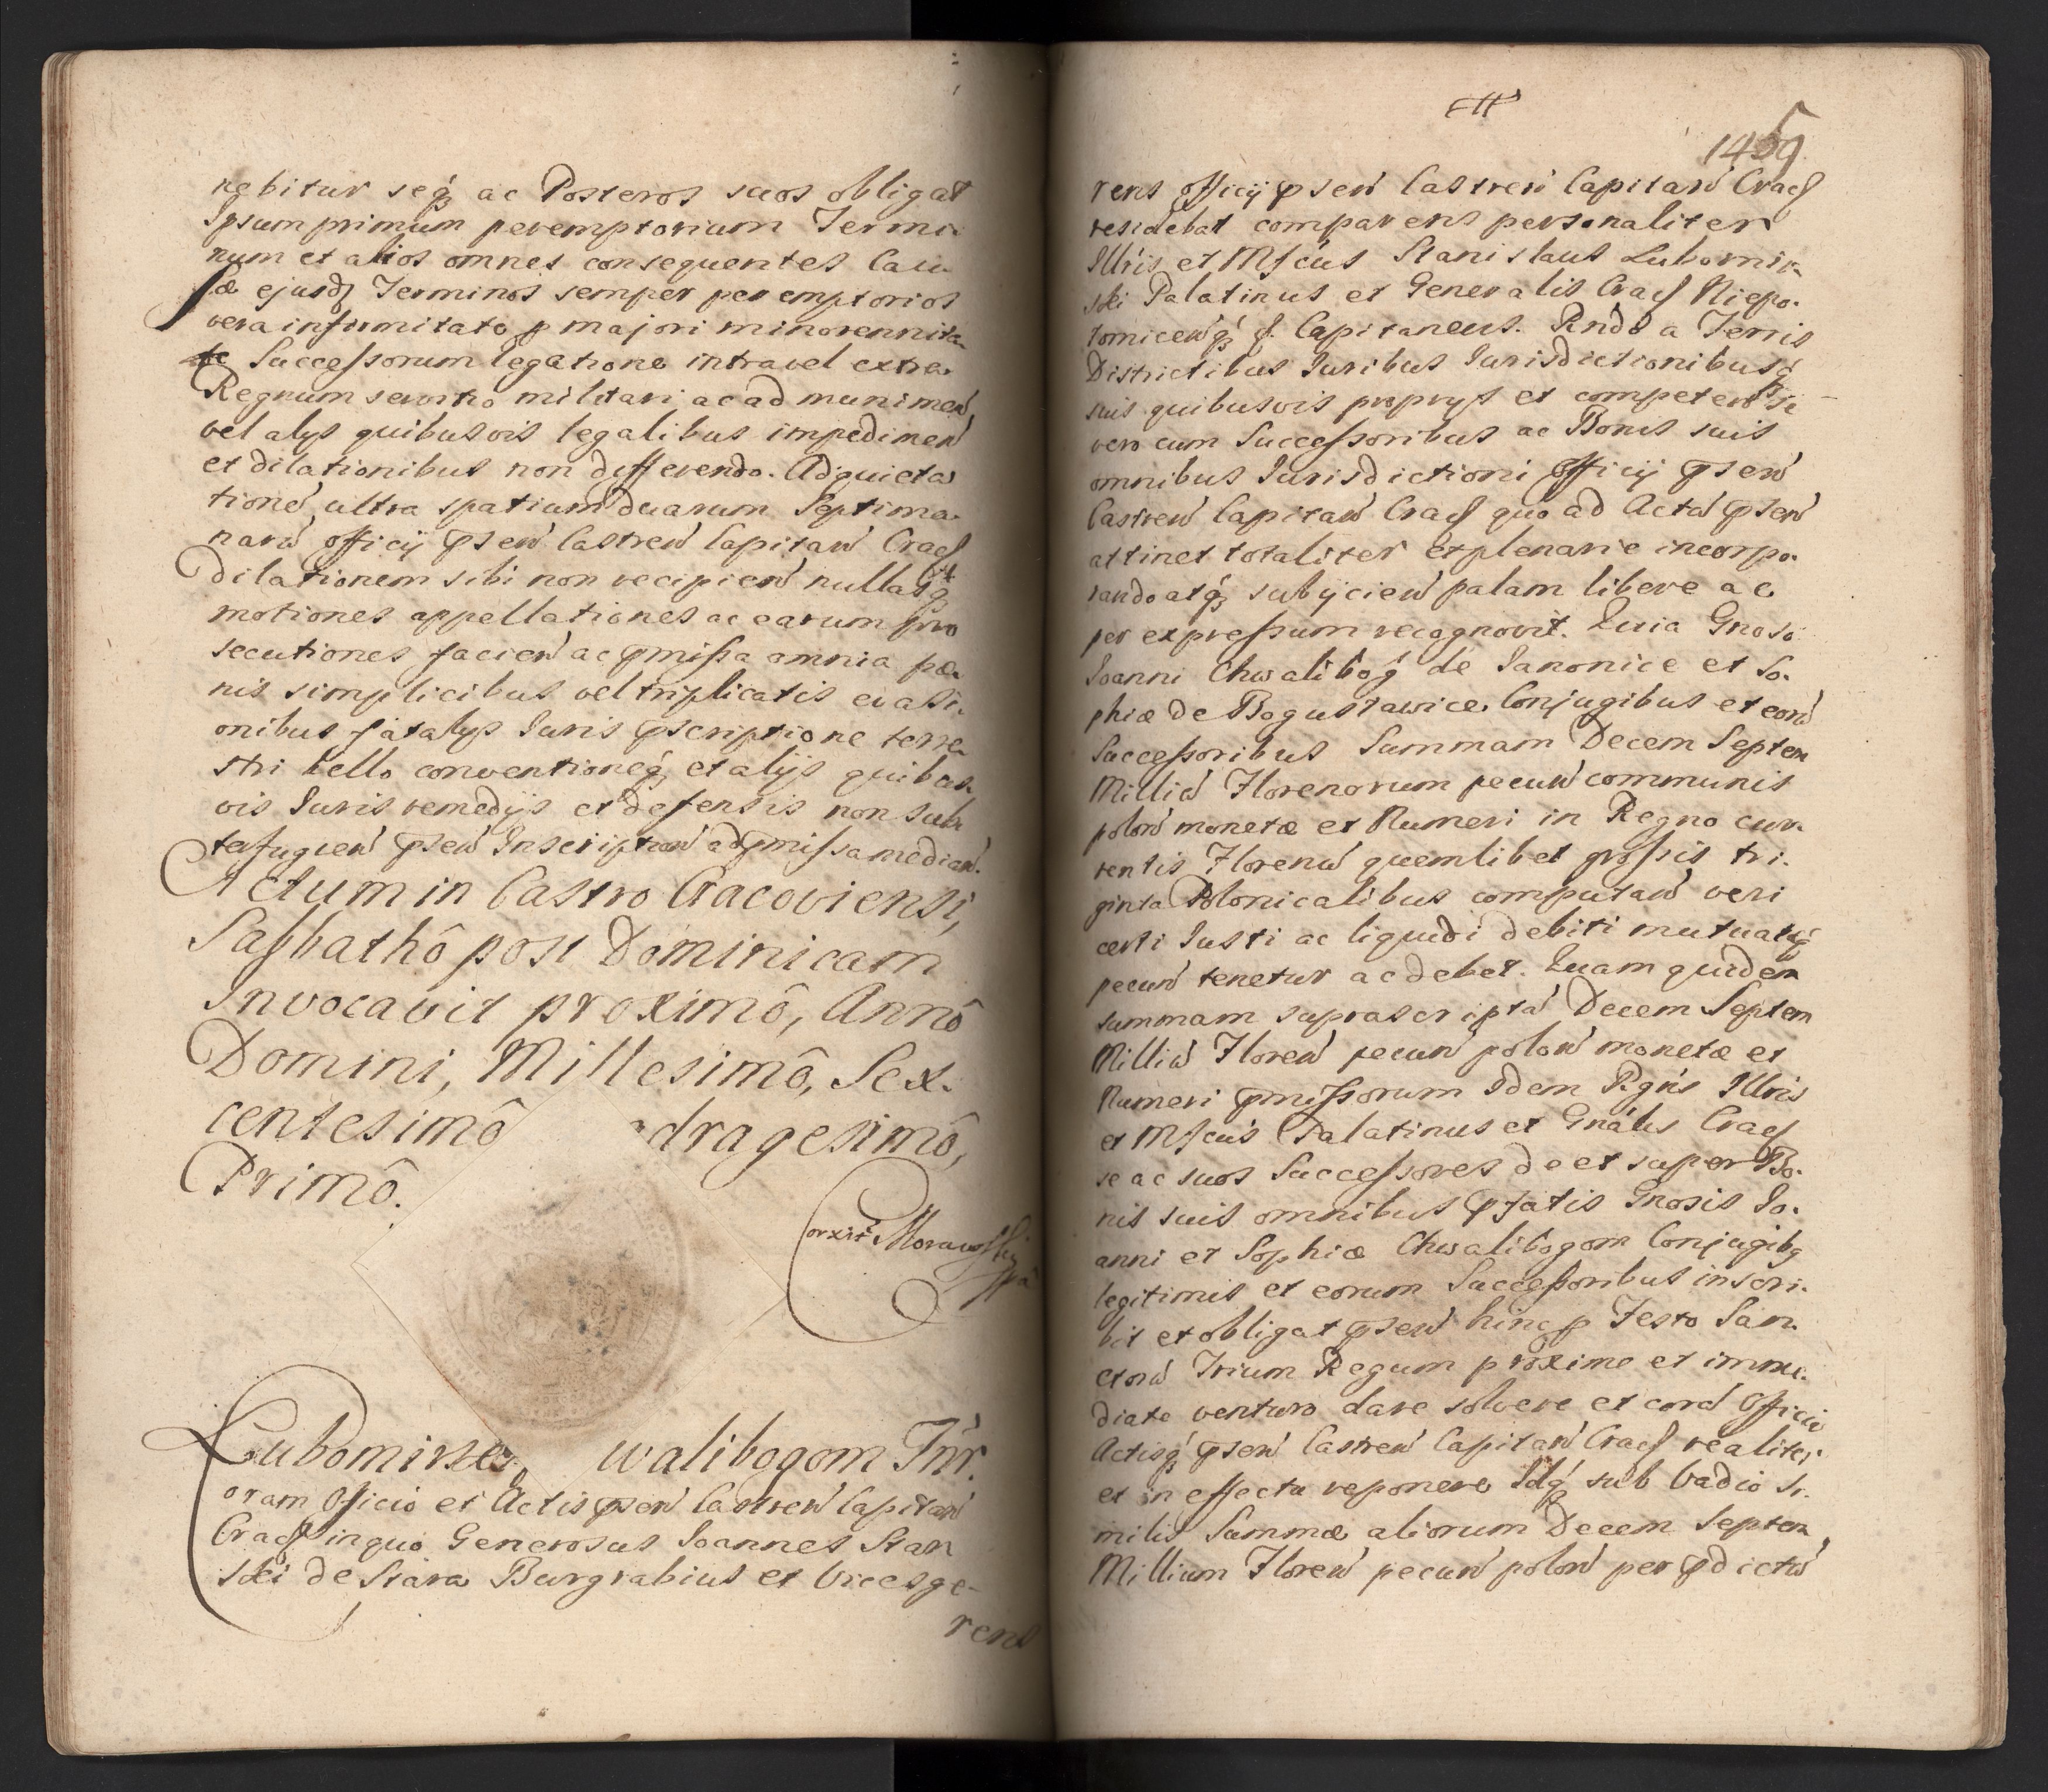 nebitur seq́ʒ ac Posteros suos obligat
Ipsum primum peremptorium Termi-
num et alios omnes consequentes Cau-
sæ ejusdʒ Terminos semper peremptorios
vera infirmitate p majori minorennita-
te Successorum legatione intra vel extra
Regnum servitio militari ac ad munimeń
vel alys quibusvis legalibus impedimeń
et dilationibus non differendo. Ad quieta-
tioné ultra spatium duarum Septima-
narú officij pseń Castreń Capitań Crac
dilationem sibi non recipień nullasq́ʒ
motiones appellationes ac earum pro
secutiones facień ac pmissa omnia pæ-
nis simplicibus vel triplicatis evasi-
onibus fatalys Iuris pscriptione terre-
stri bello conventioneq́ʒ et alijs quibus-
vis Iuris remedijs et defensis non sub
terfugień pseń Inscription ad pmissa median.
Actum in Castro Cracoviensi,
Sabbathô post Dominicam
Invocavit proximô, Annô
Domini, Millesimô, Sex-
centesimô dragesimô,
Primô.
Corxit Morawski
mpa
Lubomirs walibogom Inr.
oram Officio et Actis pseń Castreń Capitań
Crac in quo Generosus Ioannes Stan
ski de Stara Burgrabius et Vicesge-
rens
1459
5
rens officij pseń Castreń Capitań Crac
residebat comparens personaliter
Illris et Mfcus Stanislaus Lubomir-
ski Palatinus et Generalis Crac Niepo-
tomiceńq́ʒ Capitaneus. Rndo a Terris
Districtibus Iuribus Iurisdictionibusq́
suis quibusvis proprys et competeń se
vero cum Successoribus ac Bonis suis
omnibus Iurisdictioni officij pseń
Castreń Capitań Crac quo ad Actú pseń
attinet totaliter et plenarie incorpo-
rando atq́ʒ subijcień palam libere ac
per expressum recognovit. Quia Gnoso
Ioanni Chwalibóg de Ianonice et So-
phiæ de Bogusławice Conjugibus et eorú
Successoribus Summam Decem Septem
Milliú Florenorum pecuń communis
poloń monetæ et Numeri in Regno cur-
rentis Florenú quemlibet grossis tri-
ginta Polonicalibus computań veri
certi Iusti ac liquidi debiti mutuatæq́
pecuń tenetur ac debet. Quam quidem
summam suprascriptá Decem Septem
Milliú Floreń pecuń poloń monetæ et
Numeri pmissorum Idem Rgńs Illris
et Mfcus Palatinus et Gnális Crac
se ac suos Successores de et super Bo-
nis suis omnibus pfatis Gnosis Io-
anni et Sophiæ Chwalibogom Conjugibg
legitimis et eorum Successoribus inscri-
bit et obligat pseń hinc p Festo San-
ctorú Trium Regum proxime et imme-
diate venturo dare solvere et corá Officio
Actisq́ pseń Castreń Capitań Crac realiter
et in effectu reponere Idq́ʒ sub Vadio si-
milis Summæ aliorum Decem Septem
Millium Floreń pecuń poloń per pdictú